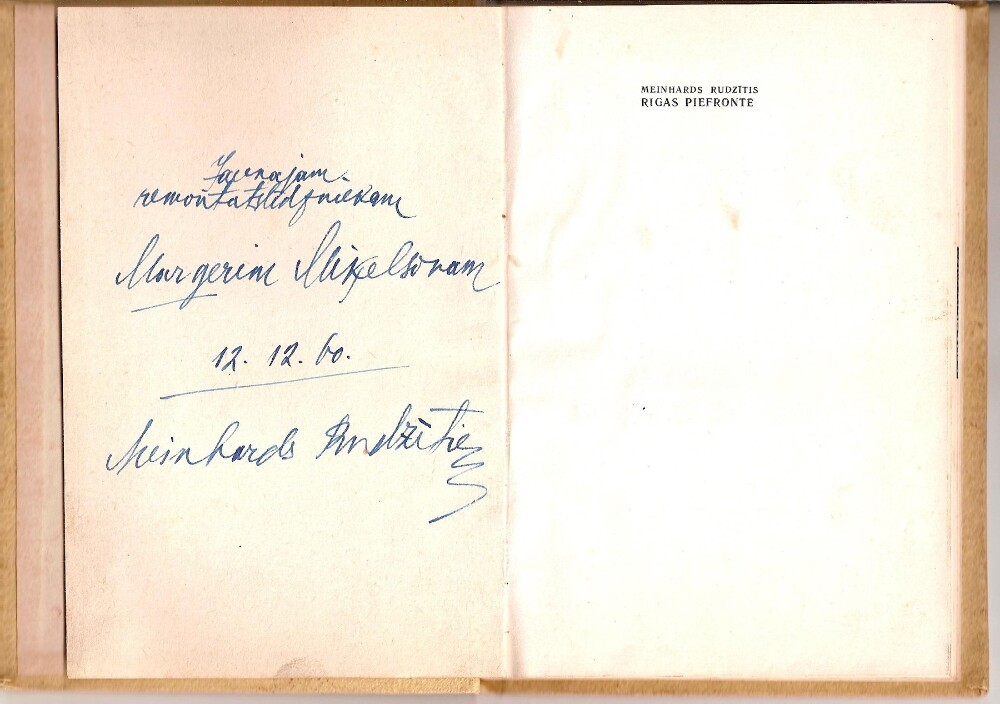 Jaunajam
remontatslēdzniekam
Margerim Miķelsonam
12. 12. 60.
Meinhards Rudzītis
MEINHARDS RUDZĪTIS
RIGAS PIEFRONTE